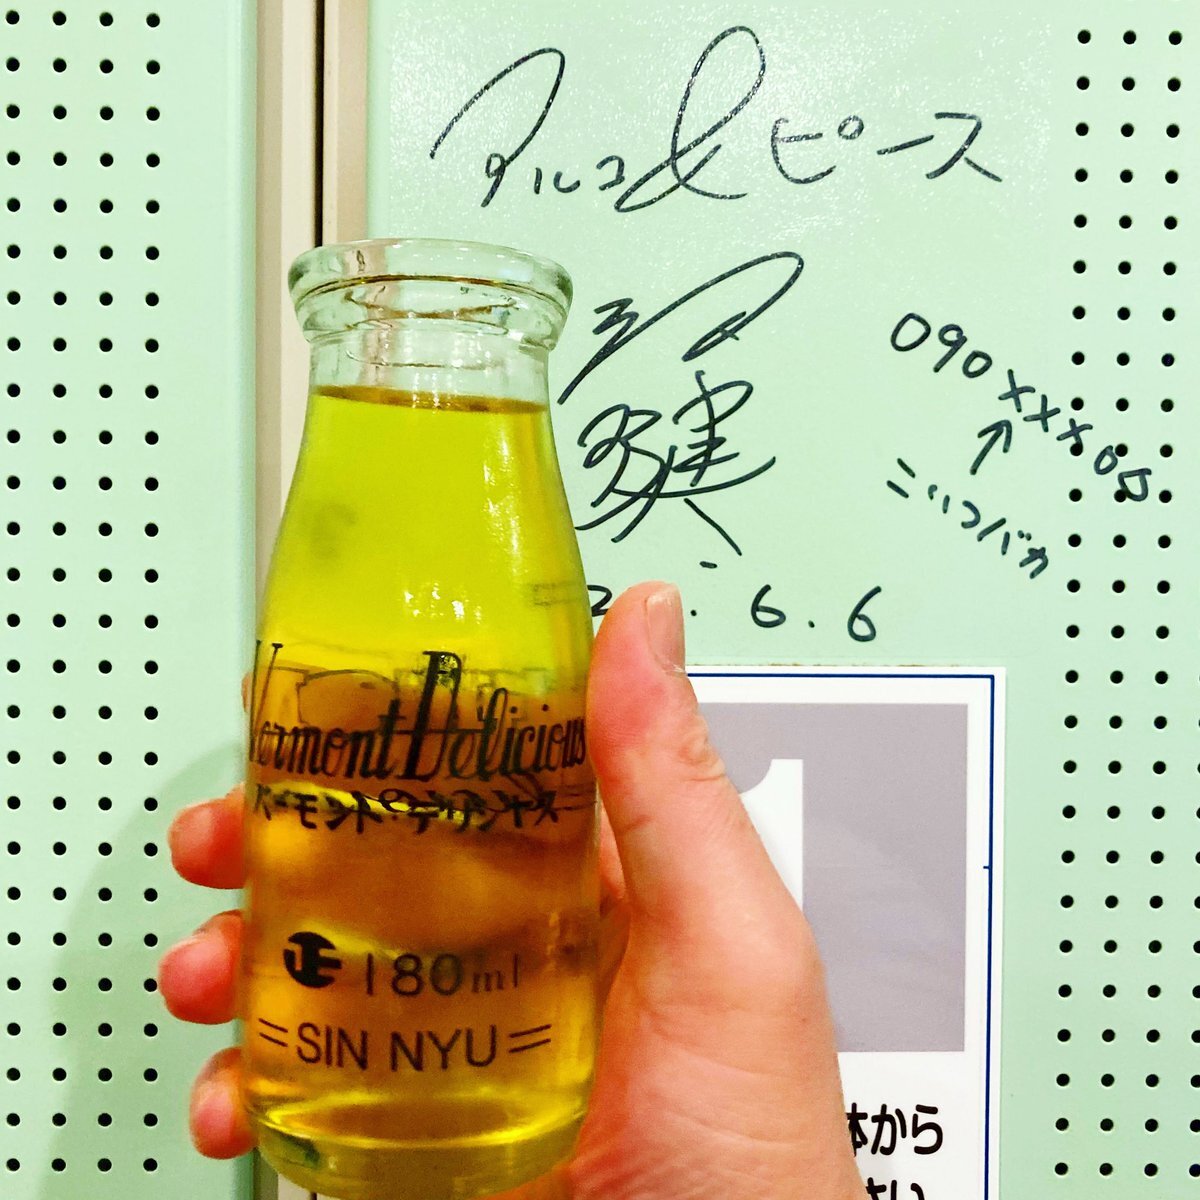 アルコ&ピース
健
090×××05
↑
こいつバカ
2 . 6 . 6
Vermont Delicious
バーモント・デリシャス
正 180ml
=SIN NYU=
1
体から
さい